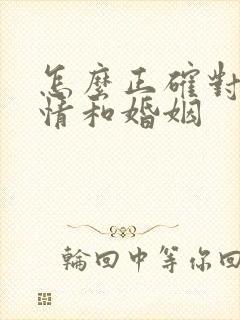 怎麼正確對
情和婚姻
輪回中等你回